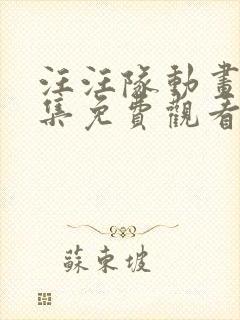 汪汪隊動畫
集免費觀看
蘇東坡